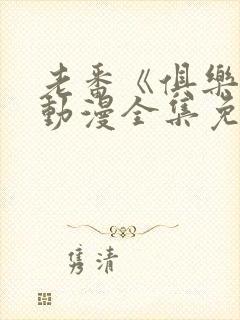 老番《俱樂
動漫全集免
隽清